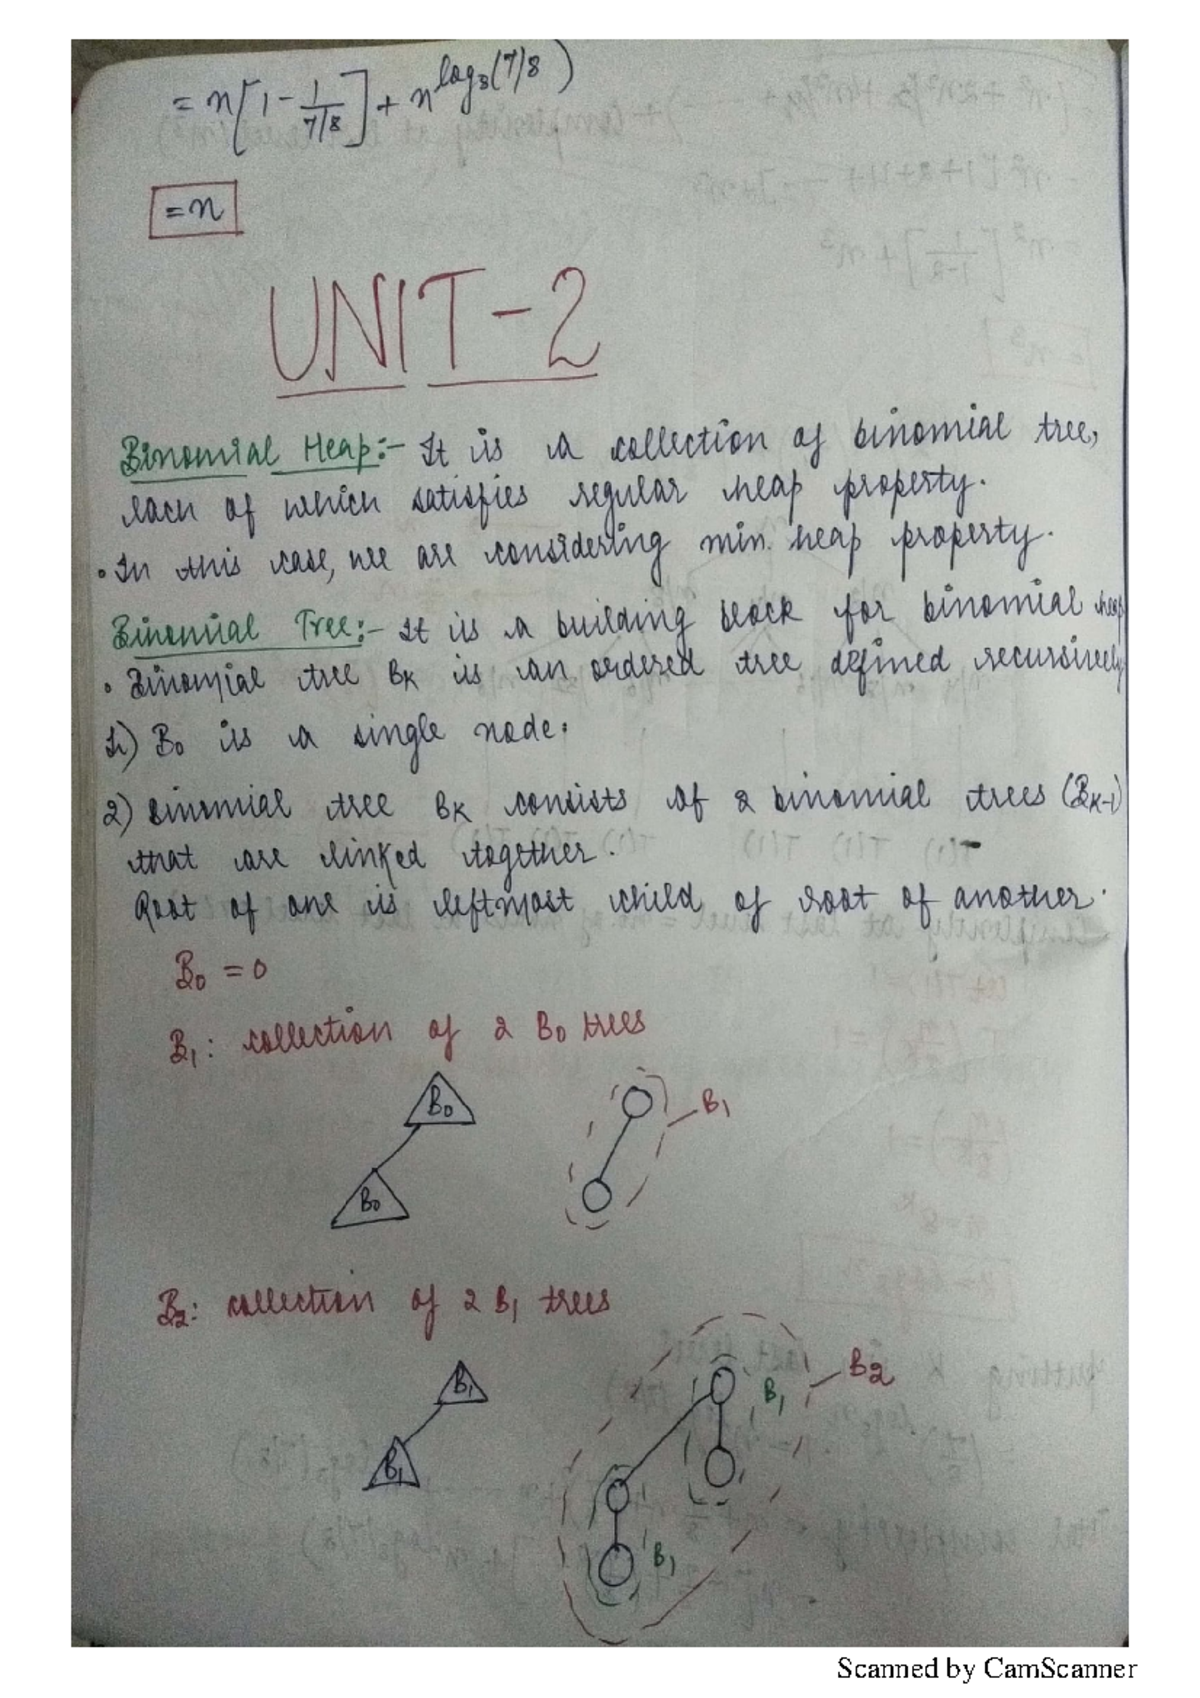 = n[1 - 1/(7/8)] + n^log₈(7/8)
= n
UNIT-2
Binomial Heap:- It is a collection of binomial tree,
each of which satisfies regular heap property.
• In this case, we are considering min. heap property.
Binomial Tree:- It is a building block for binomial heap
• Binomial tree Bk is an ordered tree defined recursively
1) B0 is a single node.
2) Binomial tree Bk consists of 2 binomial trees (Bk-1)
that are linked together.
Root of one is leftmost child of root of another.
B0 = 0
B1: collection of 2 B0 trees
B0
B1
B0
B2: collection of 2 B1 trees
B2
B1
B1
B1
B1
Scanned by CamScanner